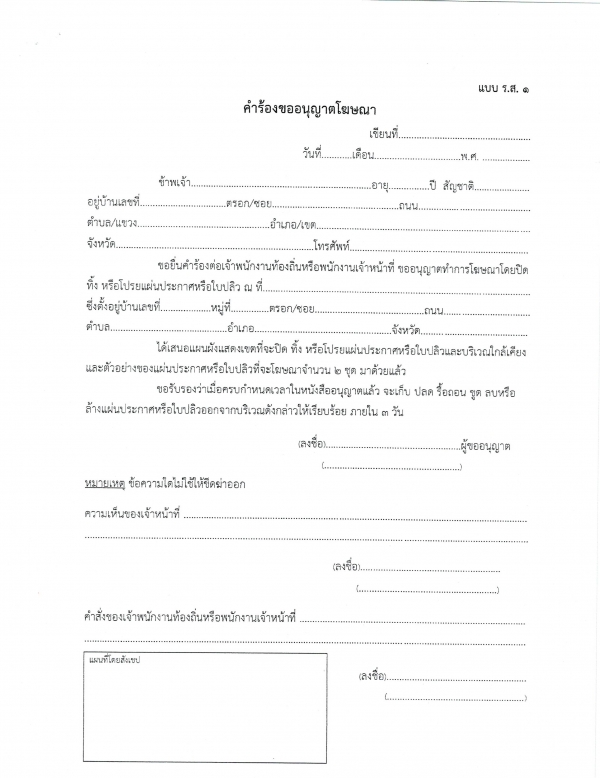 แบบ ร.ส. ๑
คำร้องขออนุญาตโฆษณา
เขียนที่..............................................
วันที่............เดือน..............................พ.ศ. .................
ข้าพเจ้า..............................................................อายุ...............ปี สัญชาติ...................
อยู่บ้านเลขที่..............................ตรอก/ซอย............................................ถนน.......................................
ตำบล/แขวง..............................................อำเภอ/เขต..........................................................................
จังหวัด....................................................................โทรศัพท์..............................................................
ขอยื่นคำร้องต่อเจ้าพนักงานท้องถิ่นหรือพนักงานเจ้าหน้าที่ ขออนุญาตทำการโฆษณาโดยปิด
ทิ้ง หรือโปรยแผ่นประกาศหรือใบปลิว ณ ที่............................................................................................
ซึ่งตั้งอยู่บ้านเลขที่..................หมู่ที่.............ตรอก/ซอย......................................ถนน..............................
ตำบล........................................อำเภอ...............................................จังหวัด.....................................
ได้เสนอแผนผังแสดงเขตที่จะปิด ทิ้ง หรือโปรยแผ่นประกาศหรือใบปลิวและบริเวณใกล้เคียง
และตัวอย่างของแผ่นประกาศหรือใบปลิวที่จะโฆษณาจำนวน ๒ ชุด มาด้วยแล้ว
ขอรับรองว่าเมื่อครบกำหนดเวลาในหนังสืออนุญาตแล้ว จะเก็บ ปลด รื้อถอน ขูด ลบหรือ
ล้างแผ่นประกาศหรือใบปลิวออกจากบริเวณดังกล่าวให้เรียบร้อย ภายใน ๓ วัน
(ลงชื่อ)..............................................ผู้ขออนุญาต
(...............................................)
หมายเหตุ ข้อความใดไม่ใช้ให้ขีดฆ่าออก
ความเห็นของเจ้าหน้าที่ ......................................................................................................................
......................................................................................................................................................
(ลงชื่อ)................................................
(................................................)
คำสั่งของเจ้าพนักงานท้องถิ่นหรือพนักงานเจ้าหน้าที่ ..............................................................................
......................................................................................................................................................
แผนที่โดยสังเขป
(ลงชื่อ)................................................
(................................................)